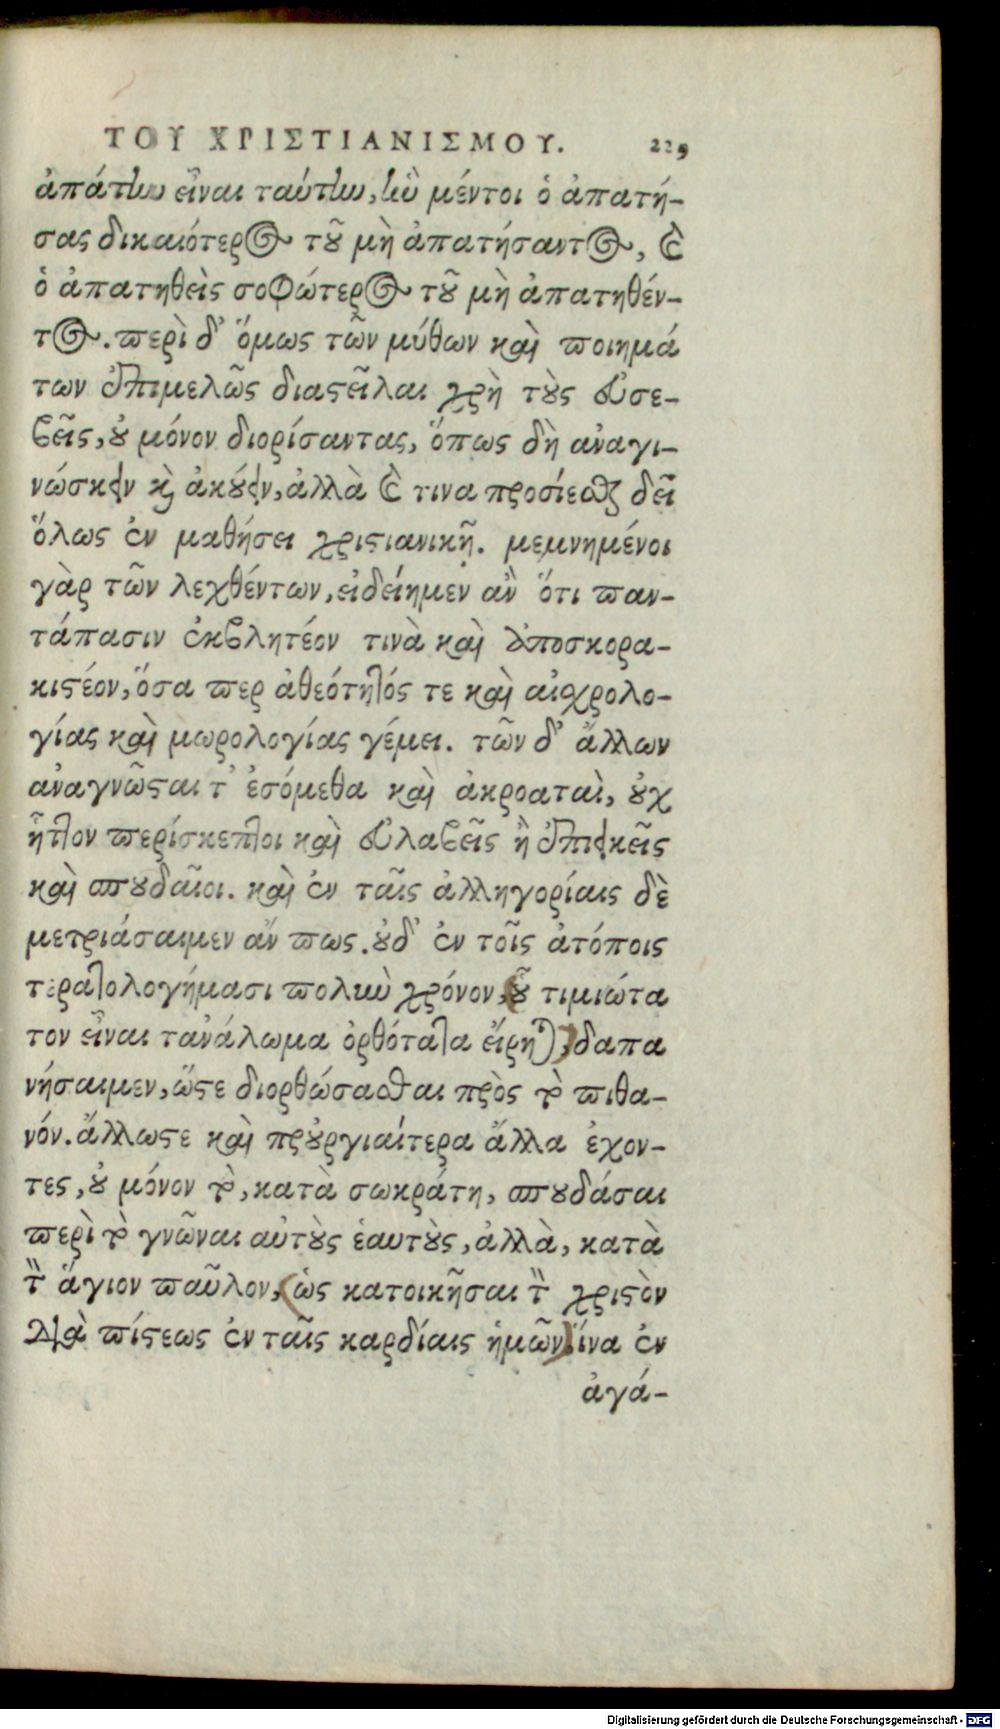 ΤΟΥ ΧΡΙΣΤΙΑΝΙΣΜΟΥ. 229
ἀπάτην εἶναι ταύτην, ἣν μέντοι ὁ ἀπατή-
σας δικαιότερος τοῦ μὴ ἀπατήσαντος, καὶ
ὁ ἀπατηθεὶς σοφώτερος τοῦ μὴ ἀπατηθέν-
τος. περὶ δ’ ὅμως τῶν μύθων καὶ ποιημά
των ἐπιμελῶς διαστεῖλαι χρὴ τοὺς εὐσε-
βεῖς, οὐ μόνον διορίσαντας, ὅπως δὴ ἀναγι-
νώσκειν καὶ ἀκούειν, ἀλλὰ καὶ τινα προσίεσθαι δεῖ
ὅλως ἐν μαθήσει χριστιανικῇ. μεμνημένοι
γὰρ τῶν λεχθέντων, εἰδείημεν ἂν ὅτι παν-
τάπασιν ἐκβλητέον τινὰ καὶ ἀποσκορα-
κιστέον, ὅσα περ ἀθεότητός τε καὶ αἰσχρολο-
γίας καὶ μωρολογίας γέμει. τῶν δ’ ἄλλων
ἀναγνῶσται τ’ ἐσόμεθα καὶ ἀκροαταὶ, οὐχ
ἧττον περίσκεπτοι καὶ εὐλαβεῖς ἢ ἐπιεικεῖς
καὶ σπουδαῖοι. καὶ ἐν ταῖς ἀλληγορίαις δὲ
μετριάσαιμεν ἄν πως. οὐδ’ ἐν τοῖς ἀτόποις
τερατολογήμασι πολὺν χρόνον, οὗ τιμιώτα
τον εἶναι τἀνάλωμα ὀρθότατα εἴρηται, δαπα
νήσαιμεν, ὥστε διορθώσασθαι πρὸς τὸ πιθα-
νόν. ἄλλωστε καὶ προὐργιαίτερα ἄλλα ἔχον-
τες, οὐ μόνον τὸ, κατὰ σωκράτη, σπουδάσαι
περὶ τὸ γνῶναι αὐτοὺς ἑαυτοὺς, ἀλλὰ, κατὰ
τὸν ἅγιον παῦλον, ὡς κατοικῆσαι τὸν χριστὸν
διὰ πίστεως ἐν ταῖς καρδίαις ἡμῶν ἵνα ἐν
ἀγά-
Digitalisierung gefördert durch die Deutsche Forschungsgemeinschaft - DFG